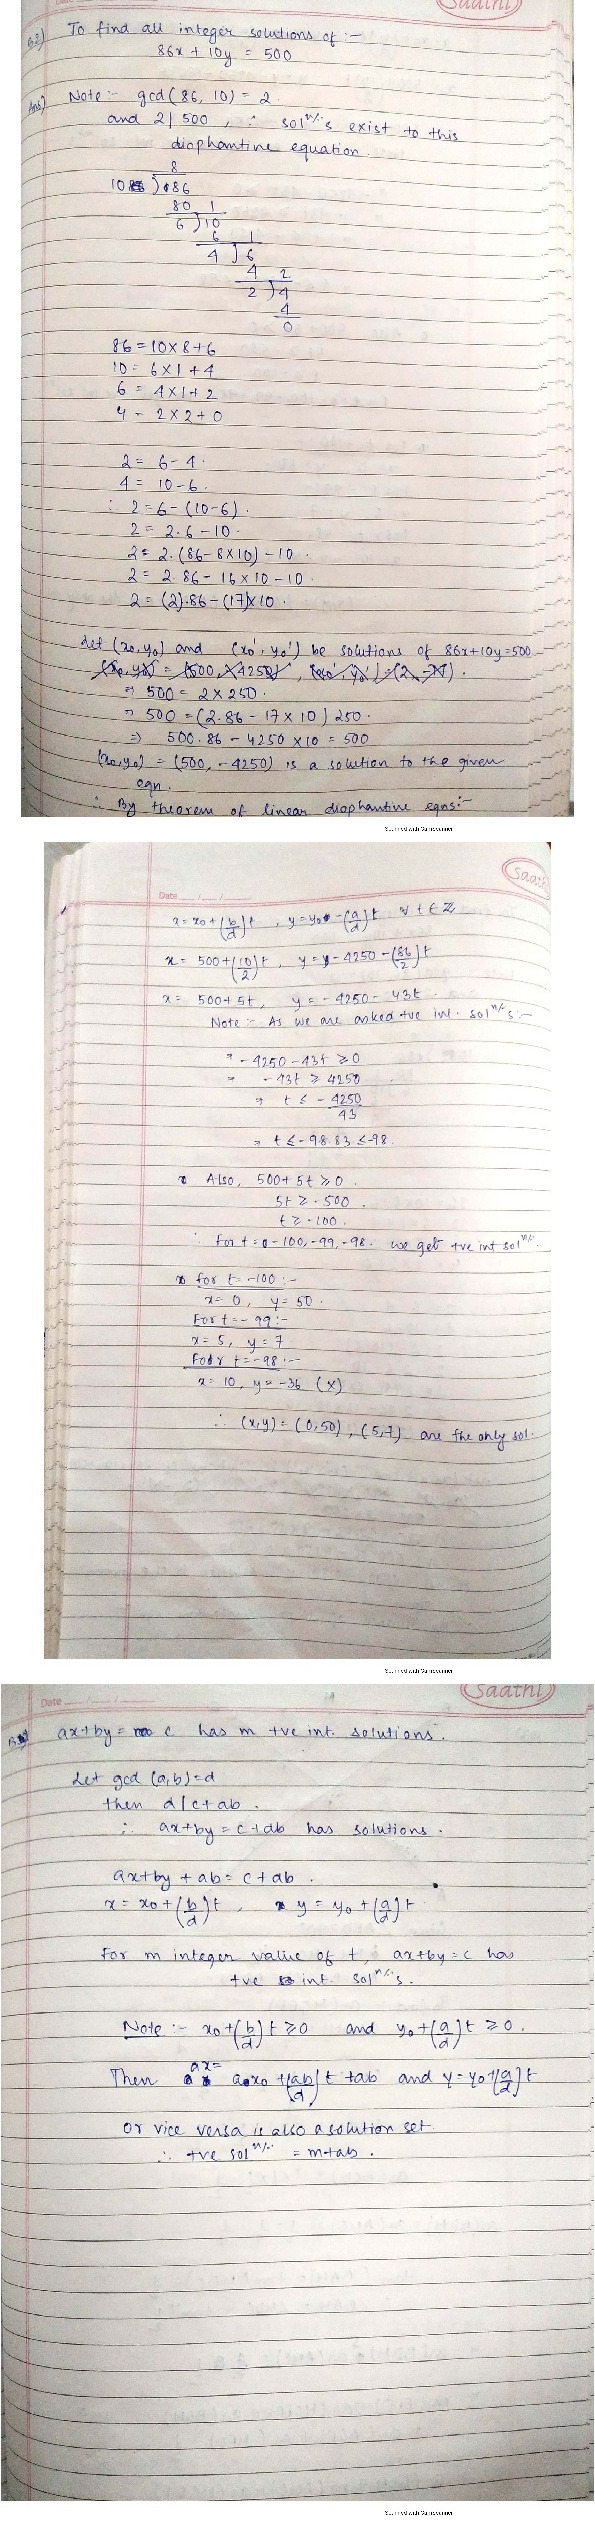 Saathi
Q.2) To find all integer solutions of :-
86x + 10y = 500
Ans) Note :- gcd (86, 10) = 2
and 2 | 500 , ∴ sol^n/s exist to this
diophantine equation.
8
10 ) 86
80 1
6 ) 10
6 1
4 ) 6
4 2
2 ) 4
4
0
86 = 10 x 8 + 6
10 = 6 x 1 + 4
6 = 4 x 1 + 2
4 = 2 x 2 + 0
2 = 6 - 4.
4 = 10 - 6.
∴ 2 = 6 - (10 - 6).
2 = 2.6 - 10.
2 = 2. (86 - 8x10) - 10.
2 = 2 86 - 16 x 10 - 10.
2 = (2).86 - (17)x10.
Let (x0, y0) and (x0', y0') be solutions of 86x+10y=500
(x0, y0) = (500, -4250), (x0', y0') = (2, -17).
⇒ 500 = 2 x 250.
⇒ 500 = (2.86 - 17 x 10) 250.
⇒ 500.86 - 4250 x 10 = 500
(x0, y0) = (500, -4250) is a solution to the given
eqn.
∴ By theorem of linear diophantine eqns:-
Scanned with CamScanner
Saathi
Date ___/___/___
x = x0 + (b/d)t , y = y0 - (a/d)t ∀ t ∈ Z
x = 500 + (10/2)t , y = - 4250 - (86/2)t
x = 500 + 5t, y = - 4250 - 43t.
Note :- As we are asked +ve int. sol^n/s :-
⇒ - 4250 - 43t ≥ 0
⇒ - 43t ≥ 4250
⇒ t ≤ - 4250/43
⇒ t ≤ - 98.83 ≤ -98.
Also, 500 + 5t ≥ 0.
5t ≥ -500.
t ≥ -100.
∴ For t = -100, -99, -98. we get +ve int sol^n/s.
for t = -100 :-
x = 0, y = 50.
For t = - 99 :-
x = 5, y = 7
For t = -98 :-
x = 10, y = -36 (x)
∴ (x,y) = (0,50), (5,7) are the only sol.
Scanned with CamScanner
Saathi
Date ___/___/___
ax + by = c has m +ve int. solutions.
Let gcd (a,b) = d
then d | c + ab.
∴ ax + by = c + db has solutions.
ax + by + ab = c + ab.
x = x0 + (b/d)t , y = y0 + (a/d)t
For m integer value of t, ax + by = c has
+ve int. sol^n/s.
Note :- x0 + (b/d)t ≥ 0 and y0 + (a/d)t ≥ 0.
ax =
Then a x0 + (ab/d)t + ab and y = y0 + (a/d)t
or vice versa is also a solution set
∴ +ve sol^n/s = m + ab.
Scanned with CamScanner